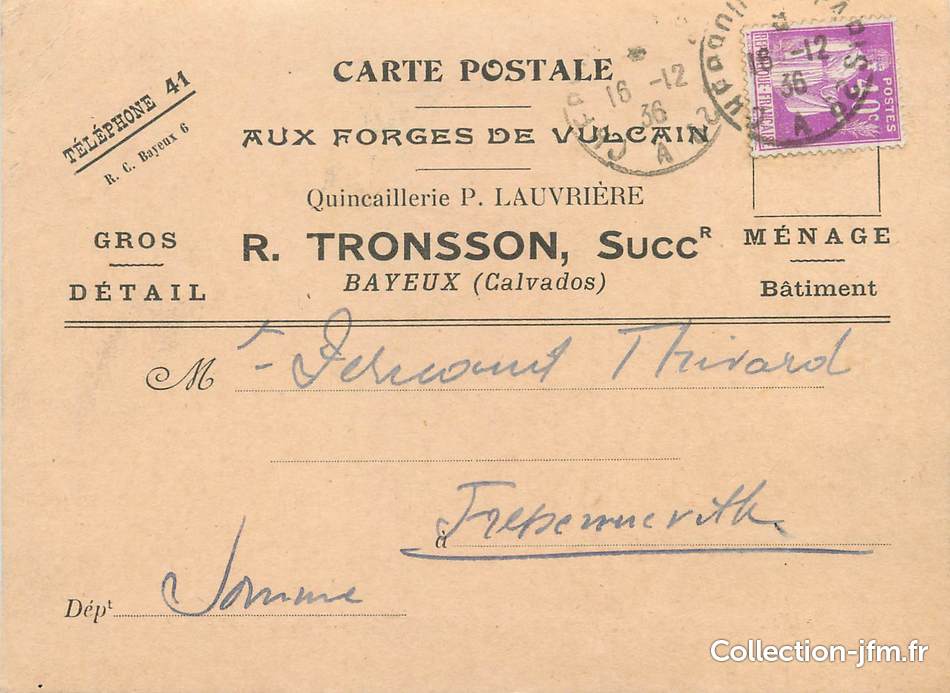 TÉLÉPHONE 41
R. C. Bayeux 6
CARTE POSTALE
AUX FORGES DE VULCAIN
Quincaillerie P. LAUVRIÈRE
R. TRONSSON, Succᴿ
BAYEUX (Calvados)
GROS
DÉTAIL
MÉNAGE
Bâtiment
16 -12
36
A
18 -12
36
A
POSTES
REPUBLIQUE FRANÇAISE
40c
M
Thivard
à
Dépᵗ Somme
Collection-jfm.fr